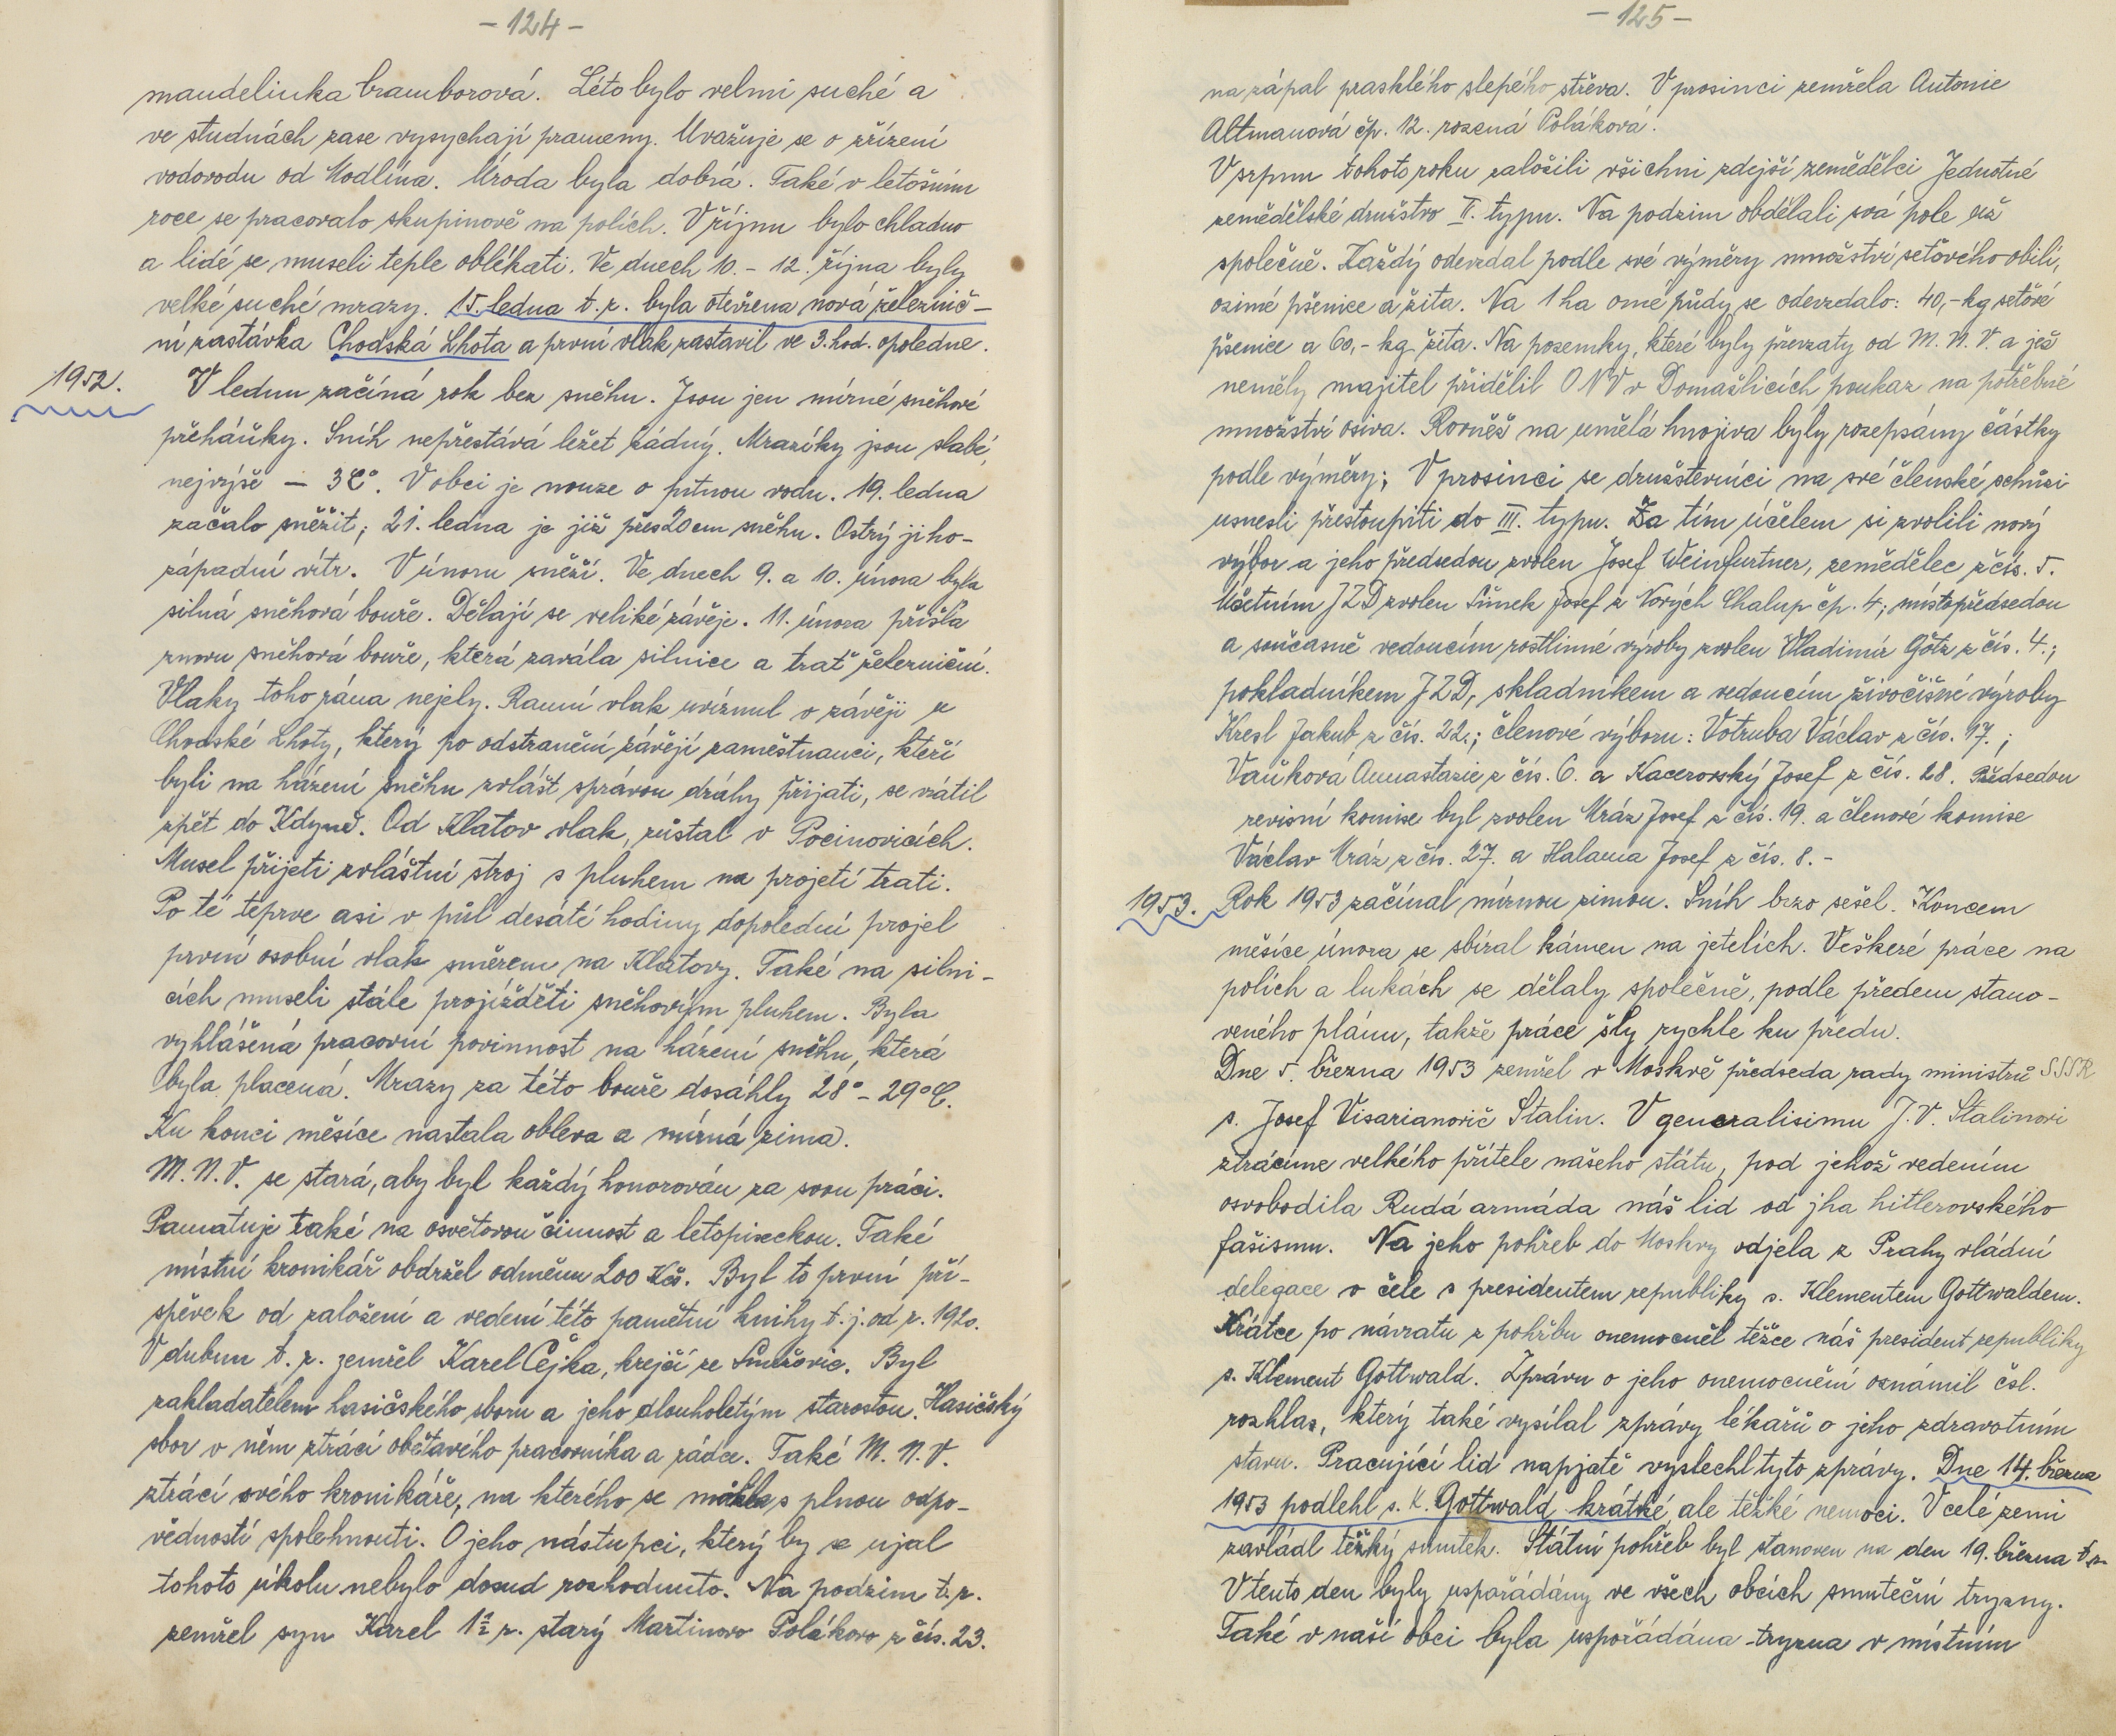 - 124 -
mandelinka bramborová. Léto bylo velmi suché a
ve studnách zase vysychají prameny. Uvažuje se o zřízení
vodovodu od Modlína. Úroda byla dobrá. Také v letošním
roce se pracovalo skupinově na polích. V říjnu bylo chladno
a lidé se museli teple oblékati. Ve dnech 10. - 12. října byly
velké suché mrazy. 15. ledna t. r. byla otevřena nová železnič-
ní zastávka Chodská Lhota a první vlak zastavil ve 3. hod. opoledne.
1952. V lednu začíná rok bez sněhu. Jsou jen mírné sněhové
přeháňky. Sníh nepřestává ležet žádný. Mrazíky jsou slabé,
nejvýše - 3C°. V obci je nouze o pitnou vodu. 19. ledna
začalo sněžit; 21. ledna je již přes 20 cm sněhu. Ostrý jiho-
západní vítr. V únoru sněží. Ve dnech 9. a 10. února byla
silná sněhová bouře. Dělají se veliké závěje. 11. února přišla
znovu sněhová bouře, která zavála silnice a trať železniční.
Vlaky toho rána nejely. Ranní vlak uvíznul v závěji u
Chodské Lhoty, který po odstranění závějí zaměstnanci, kteří
byli na házení sněhu zvlášt správou dráhy přijati, se vrátil
zpět do Kdyně. Od Klatov vlak, zůstal v Pocinovicích.
Musel přijeti zvláštní stroj s pluhem na projetí trati.
Po té teprve asi v půl desáté hodiny dopolední projel
první osobní vlak směrem na Klatovy. Také na silni-
cích museli stále projížděti sněhovým pluhem. Byla
vyhlášená pracovní povinnost na házení sněhu, která
byla placená. Mrazy za této bouře dosáhly 28° - 29°C.
Ku konci měsíce nastala obleva a mírná zima.
M. N. V. se stará, aby byl každý honorován za svou práci.
Pamatuje také na osvětovou činnost a letopiseckou. Také
místní kronikář obdržel odměnu 200 Kčs. Byl to první pří-
spěvek od založení a vedení této pamětní knihy t. j. od r. 1920.
V dubnu t. r. zemřel Karel Čejka, krejčí ze Smržovic. Byl
zakladatelem hasičského sboru a jeho dlouholetým starostou. Hasičský
sbor v něm ztrácí obětavého pracovníka a rádce. Také M. N. V.
ztrácí svého kronikáře, na kterého se mohla s plnou odpo-
vědností spolehnouti. O jeho nástupci, který by se ujal
tohoto úkolu nebylo dosud rozhodnuto. Na podzim t. r.
zemřel syn Karel 1½ r. starý Martinovo Polákovo z čís. 23.
- 125 -
na zápal prasklého slepého střeva. V prosinci zemřela Antonie
Altmanová čp. 12. rozená Poláková.
V srpnu tohoto roku založili všichni zdejší zemědělci Jednotné
zemědělské družstvo II. typu. Na podzim obdělali svá pole už
společně. Každý odevzdal podle své výměry množství seťového obilí,
ozimé pšenice a žita. Na 1 ha orné půdy se odevzdalo: 40,- kg seťové
pšenice a 60,- kg žita. Na pozemky, které byly převzaty od M. N. V. a jež
neměly majitel přidělil ONV v Domažlicích poukaz na potřebné
množství osiva. Rovněž na umělá hnojiva byly rozepsány částky
podle výměry; V prosinci se družstevníci na své členské schůzi
usnesli přestoupiti do III. typu. Za tím účelem si zvolili nový
výbor a jeho předsedou zvolen Josef Weinfurtner, zemědělec z čís. 5.
Účetním JZD zvolen Šimek Josef z Nových Chalup čp. 4; místopředsedou
a současně vedoucím rostlinné výroby zvolen Vladimír Götz z čís. 4.;
pokladníkem JZD, skladníkem a vedoucím živočišné výroby
Kresl Jakub z čís. 22.; členové výboru: Votruba Václav z čís. 17. ;
Vaňková Annastazie z čís. 6. a Kacerovský Josef z čís. 28. Předsedou
revisní komise byl zvolen Mráz Josef z čís. 19. a členové komise
Václav Mráz z čís. 27. a Halama Josef z čís. 8. -
1953. Rok 1953 začínal mírnou zimou. Sníh brzo sešel. Koncem
měsíce února se sbíral kámen na jetelích. Veškeré práce na
polích a lukách se dělaly společně, podle předem stano-
veného plánu, takže práce šly rychle ku předu.
Dne 5. března 1953 zemřel v Moskvě předseda rady ministrů SSSR
s. Josef Visarianovič Stalin. V generalisimu J. V. Stalinovi
ztrácíme velkého přítele našeho státu, pod jehož vedením
osvobodila Rudá armáda náš lid od jha hitlerovského
fašismu. Na jeho pohřeb do Moskvy odjela z Prahy vládní
delegace v čele s presidentem republiky s. Klementem Gottwaldem.
Krátce po návratu z pohřbu onemocněl těžce náš president republiky
s. Klement Gottwald. Zprávu o jeho onemocnění oznámil čsl.
rozhlas, který také vysílal zprávy lékařů o jeho zdravotním
stavu. Pracující lid napjatě vyslechl tyto zprávy. Dne 14. března
1953 podlehl s. K. Gottwald krátké, ale těžké nemoci. V celé zemi
zavládl těžký smutek. Státní pohřeb byl stanoven na den 19. března t. r.
V tento den byly uspořádány ve všech obcích smuteční tryzny.
Také v naší obci byla uspořádána tryzna v místním